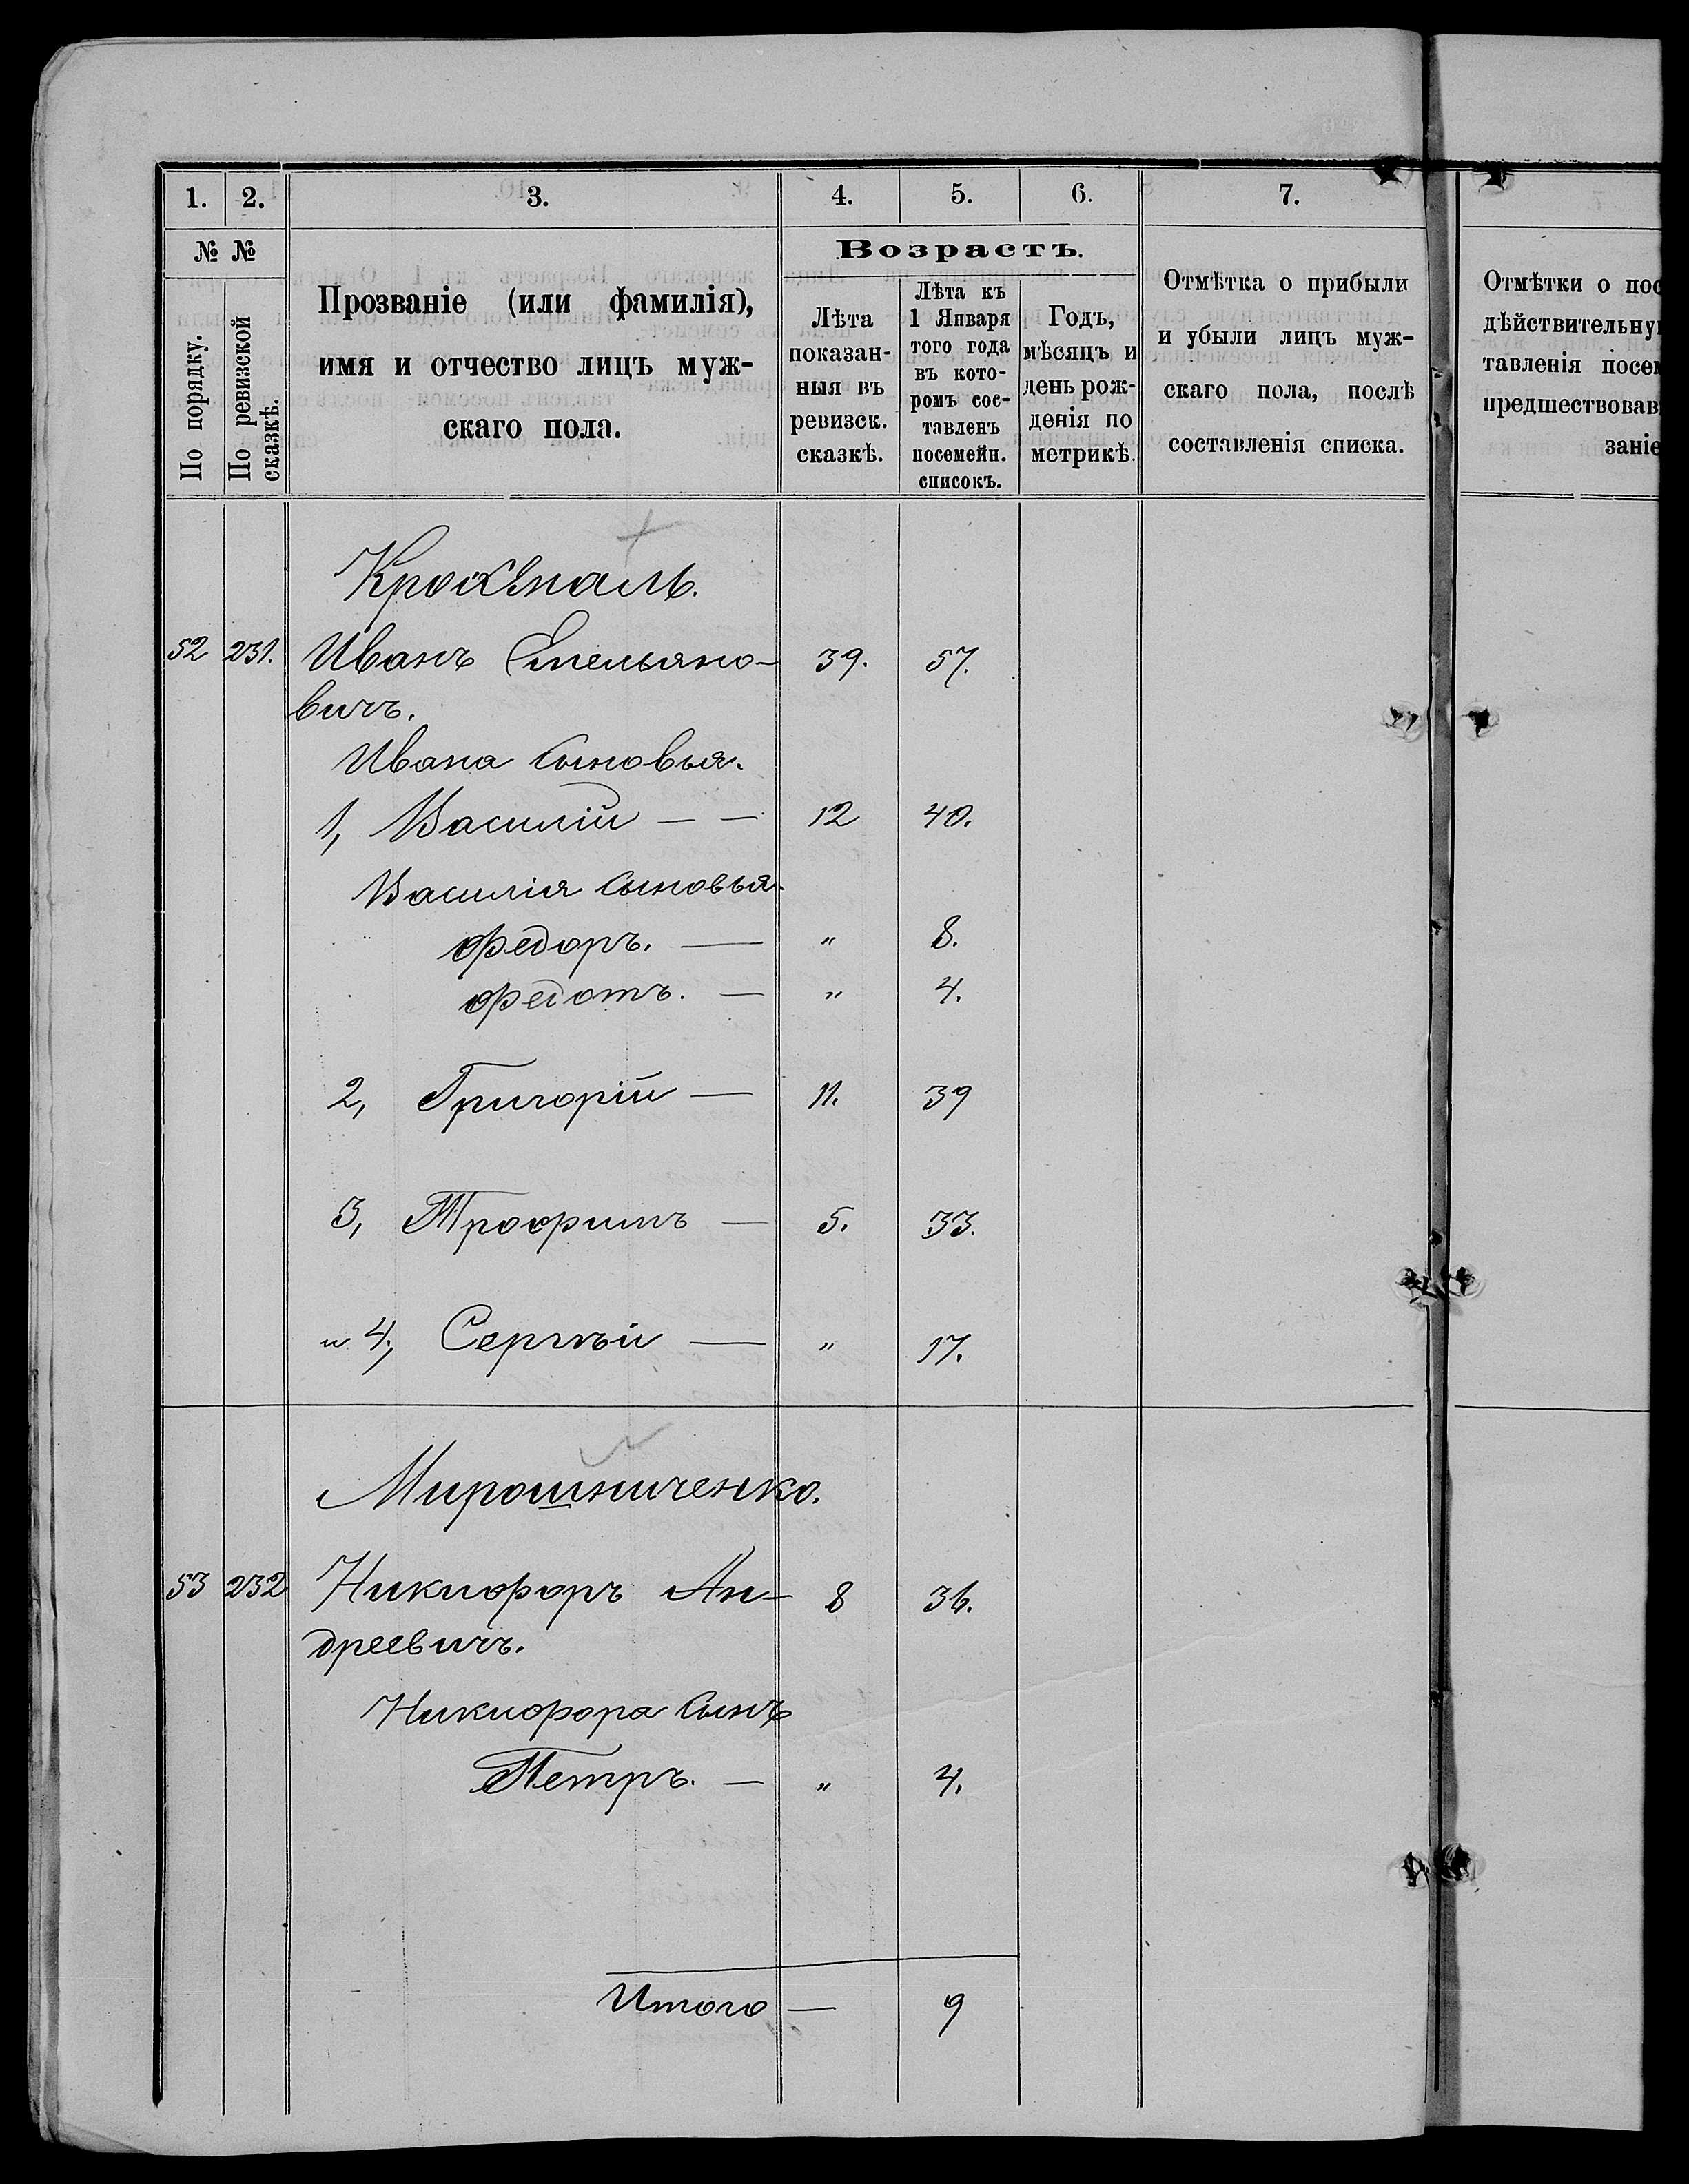 1. 2. 3. 4. 5. 6. 7.
№ №
По порядку.
По ревизской сказкѣ.
Прозваніе (или фамилія),
имя и отчество лицъ муж-
скаго пола.
Возрастъ.
Лѣта
показан-
ныя въ
ревизск.
сказкѣ.
Лѣта къ
1 Января
того года
въ кото-
ромъ сос-
тавленъ
посемейн.
списокъ.
Годъ,
мѣсяцъ и
день рож-
денія по
метрикѣ.
Отмѣтка о прибыли
и убыли лицъ муж-
скаго пола, послѣ
составленія списка.
Отмѣтки о пос
дѣйствительну
тавленія посем
предшествовав
заніе
Крохмаль.
52 231. Иванъ Емельяно- 39. 57.
вичъ.
Ивана сыновья.
1, Василій — — 12 40.
Василія сыновья.
Федоръ. — " 8.
Федотъ. — " 4.
2, Григорій — 11. 39
3, Трофимъ — 5. 33.
и 4, Сергѣй — " 17.
Мирошниченко.
53 232 Никифоръ Ан- 8 36.
дреевичъ.
Никифора сынъ
Петръ. — " 4.
Итого — 9